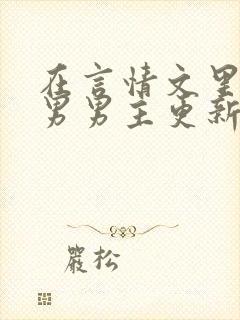 在言情文里
男男主更新
嚴松